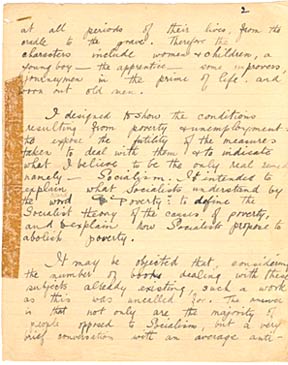 2
at all periods of their lives, from the
cradle to the grave. Therefore the
characters include women & children, a
young boy — the apprentice — some improvers,
journeymen in the prime of life, and
worn out old men.
I designed to show the conditions
resulting from poverty & unemployment:
to expose the futility of the measures
taken to deal with them & to indicate
what I believe to be the only real
namely — Socialism. I intended to
explain what Socialists understand by
the word "Poverty": to define the
Socialist theory of the causes of poverty,
and to explain how Socialists propose to
abolish poverty.
It may be objected that, considering
the number of books dealing with these
subjects already existing, such a work
as this was uncalled for. The answer
is that not only are the majority of
people opposed to Socialism, but a very
brief conversation with an average anti-